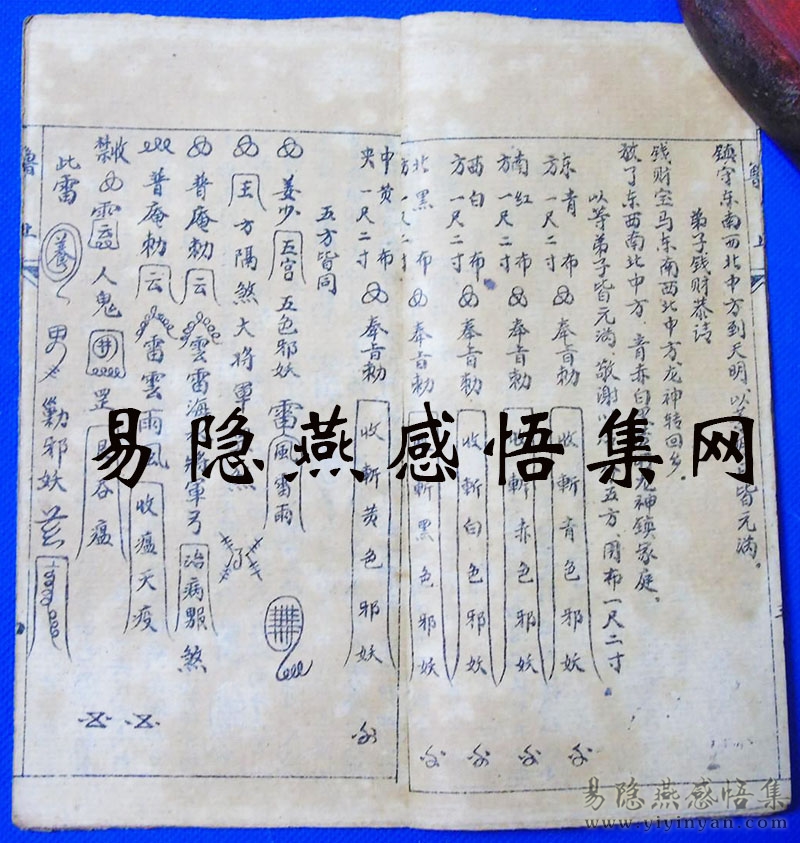 鎮守东南西北中方到天明、以
皆元满。
弟子钱财恭请
钱财宝马东南西北中方龙神转回乡。
敬了东西南北中方、青赤白
龙神鎮家庭。
以等弟子皆元满、敬谢
五方、用布一尺二寸
东方 青布一尺二寸 奉旨勅 收斬青色邪妖
南方 红布一尺二寸 奉旨勅 收斬赤色邪妖
西方 白布一尺二寸 奉旨勅 收斬白色邪妖
北方 黑布一尺二寸 奉旨勅 斬黑色邪妖
中央 黄布一尺二寸 奉旨勅 收斬黄色邪妖
五方皆同
姜少 五宫 五色邪妖 雷 風雷雨
王 方隔煞大將軍
普庵勅 云 雲雷海 將軍 弓 治病 煞
普庵勅 云 雷雲雨風 收瘟天疫
收禁 人鬼 井 罡 瘟
此雷 養 男 勦邪妖
魯 上
魯 上
易隐燕感悟集网
易隐燕感悟集
www.yiyinyan.com